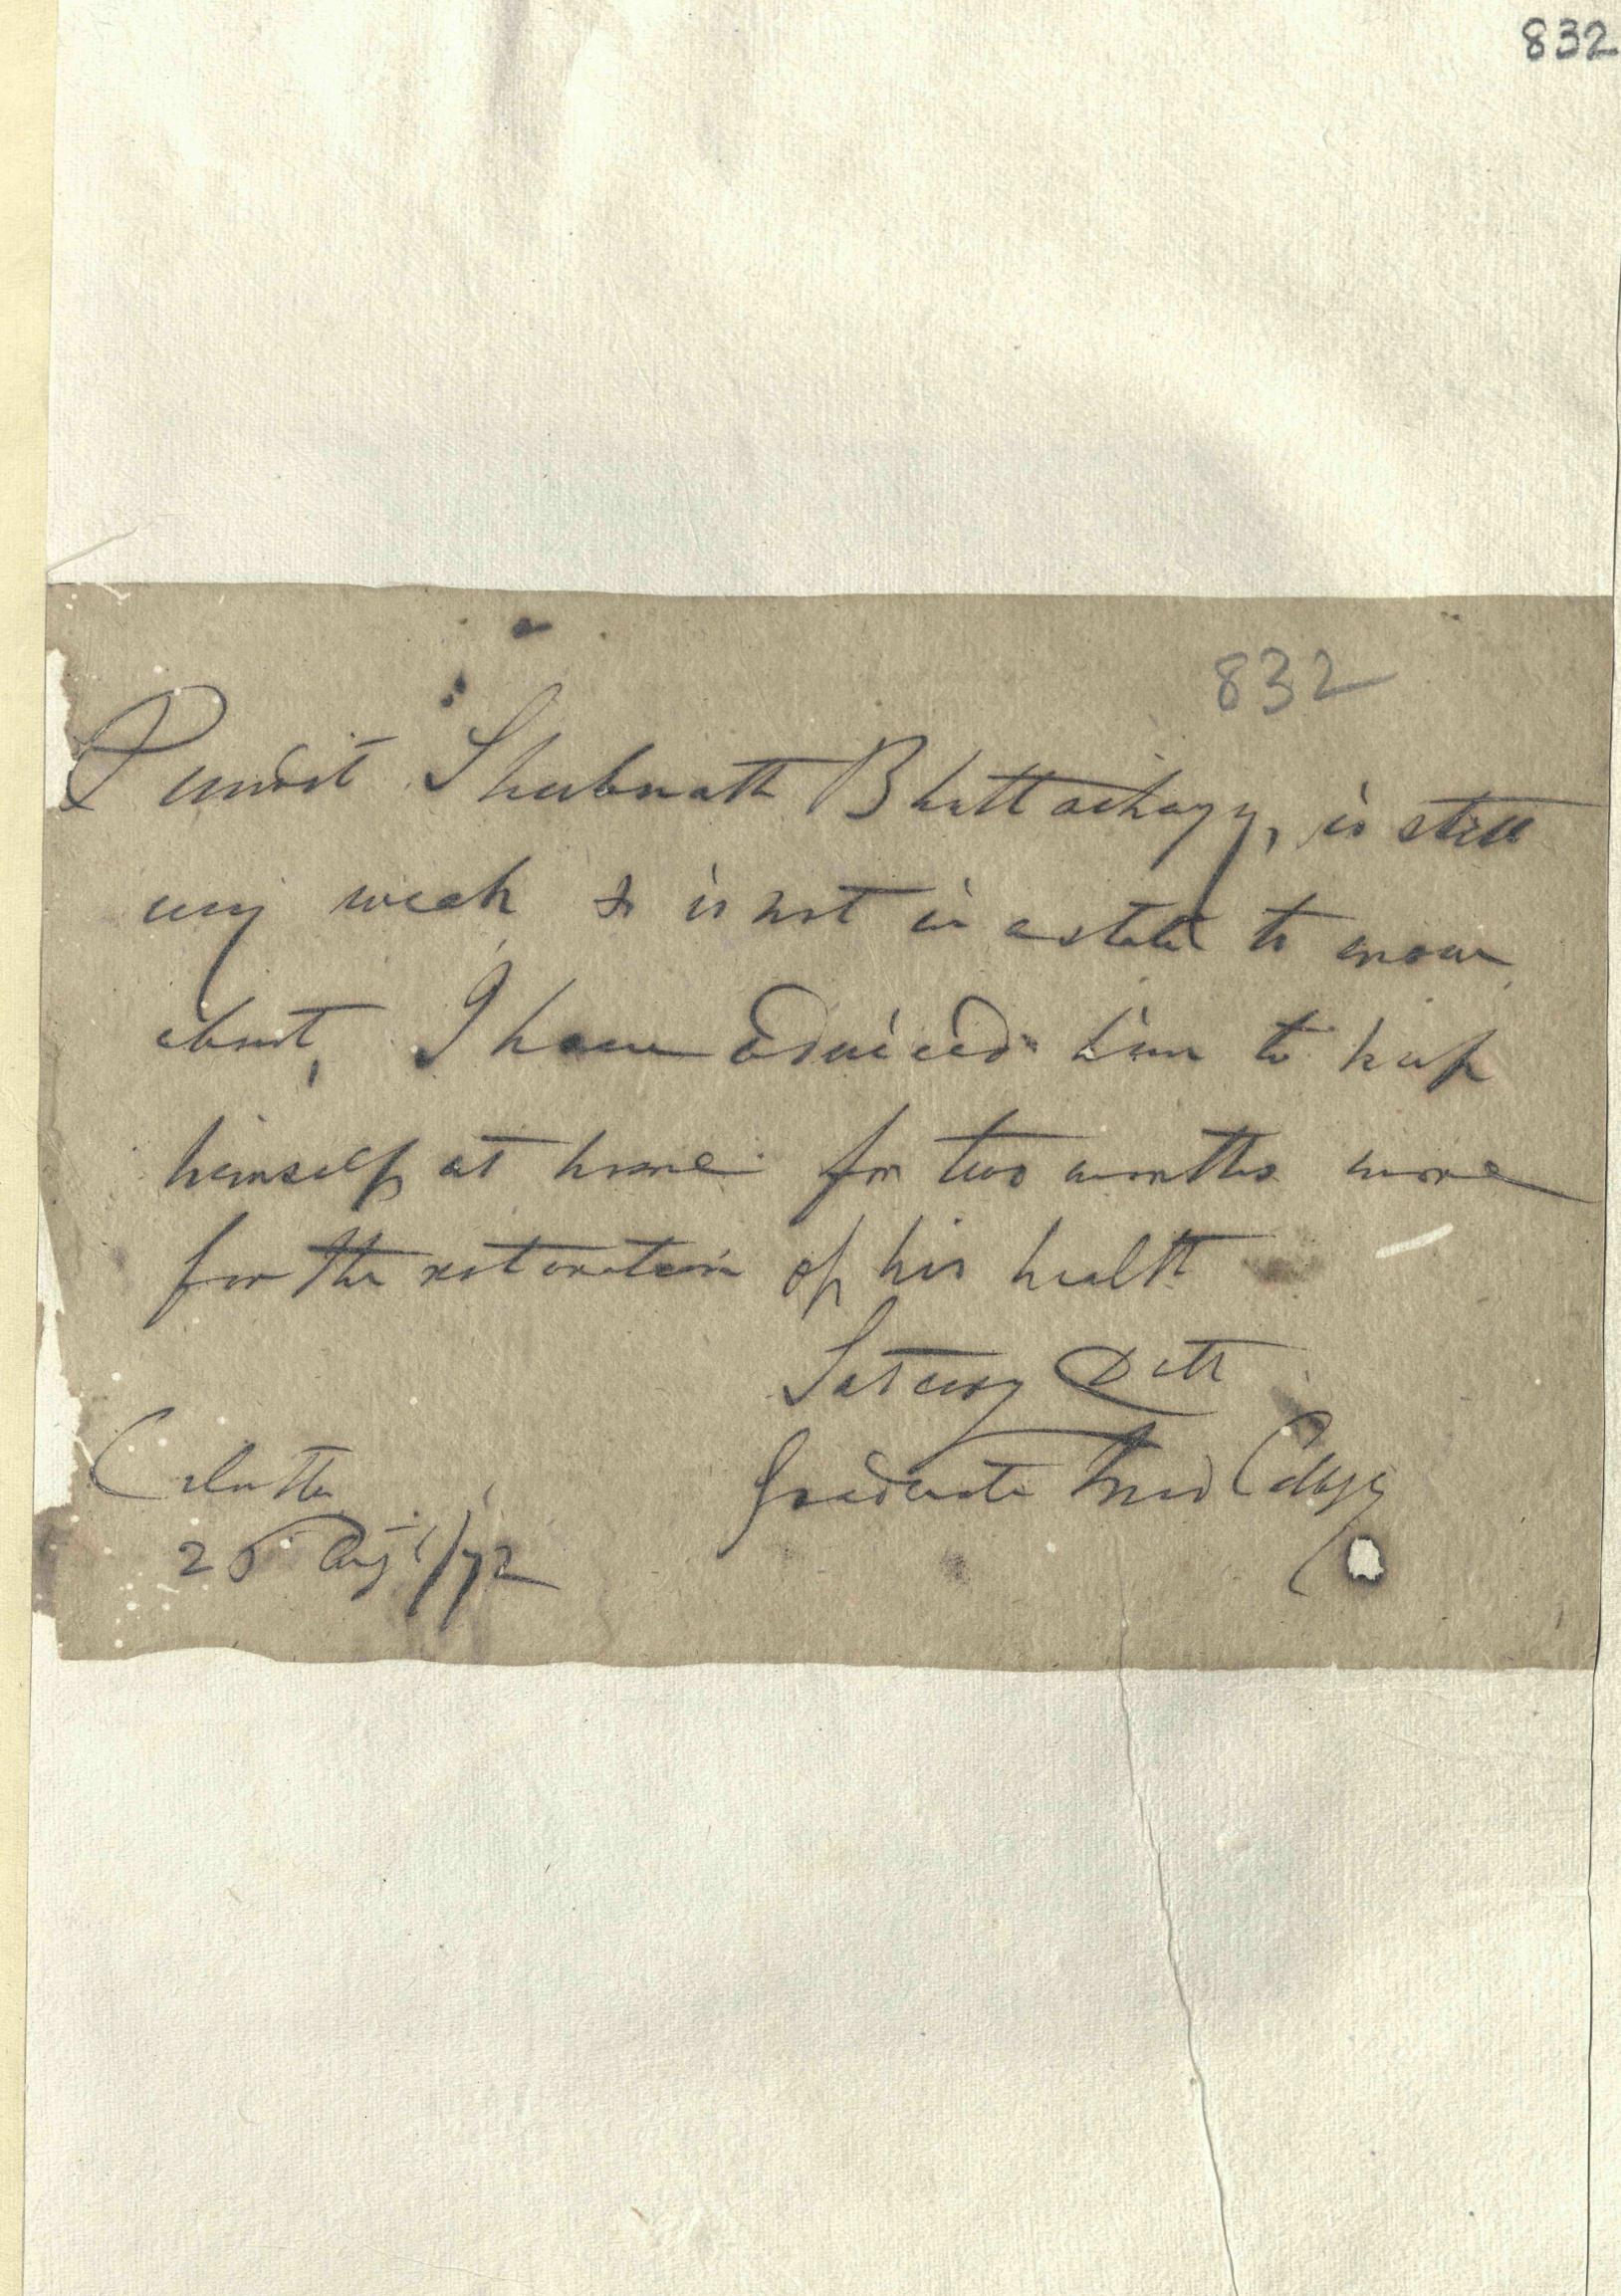 832
832
Pundit Sheebnath Bhuttacharjy, is still
very weak & is not in a state to move
about, I have adviced him to keep
himself at home for two months more
for the restoration of his health
Dutt
Graduate Med College
Calcutta
25 Augt /72